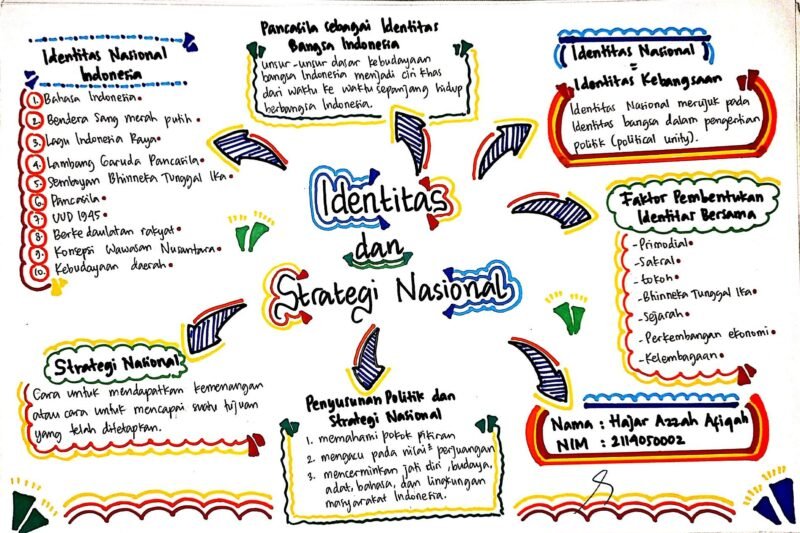 Identitas Nasional
Indonesia
1. Bahasa Indonesia
2. Bendera Sang merah putih
3. Lagu Indonesia Raya
4. Lambang Garuda Pancasila
5. Semboyan Bhinneka Tunggal Ika
6. Pancasila
7. UUD 1945
8. Berkedaulatan rakyat
9. Konsepsi Wawasan Nusantara
10. Kebudayaan daerah
Pancasila sebagai Identitas
Bangsa Indonesia
unsur-unsur dasar kebudayaan
bangsa Indonesia menjadi ciri khas
dari waktu ke waktu sepanjang hidup
berbangsa Indonesia.
Identitas Nasional
=
Identitas Kebangsaan
Identitas Nasional merujuk pada
Identitas bangsa dalam pengertian
politik (political unity).
Identitas
dan
Strategi Nasional
Faktor Pembentukan
Identitas Bersama
- Primodial
- Sakral
- tokoh
- Bhinneka Tunggal Ika
- Sejarah
- Perkembangan ekonomi
- Kelembagaan
Strategi Nasional
Cara untuk mendapatkan kemenangan
atau cara untuk mencapai suatu tujuan
yang telah ditetapkan.
Penyusunan Politik dan
Strategi Nasional
1. memahami pokok pikiran
2. mengacu pada nilai² perjuangan
3. mencerminkan jati diri, budaya,
adat, bahasa, dan lingkungan
masyarakat Indonesia.
Nama : Hajar Azzah Afiqah
NIM : 2114050002